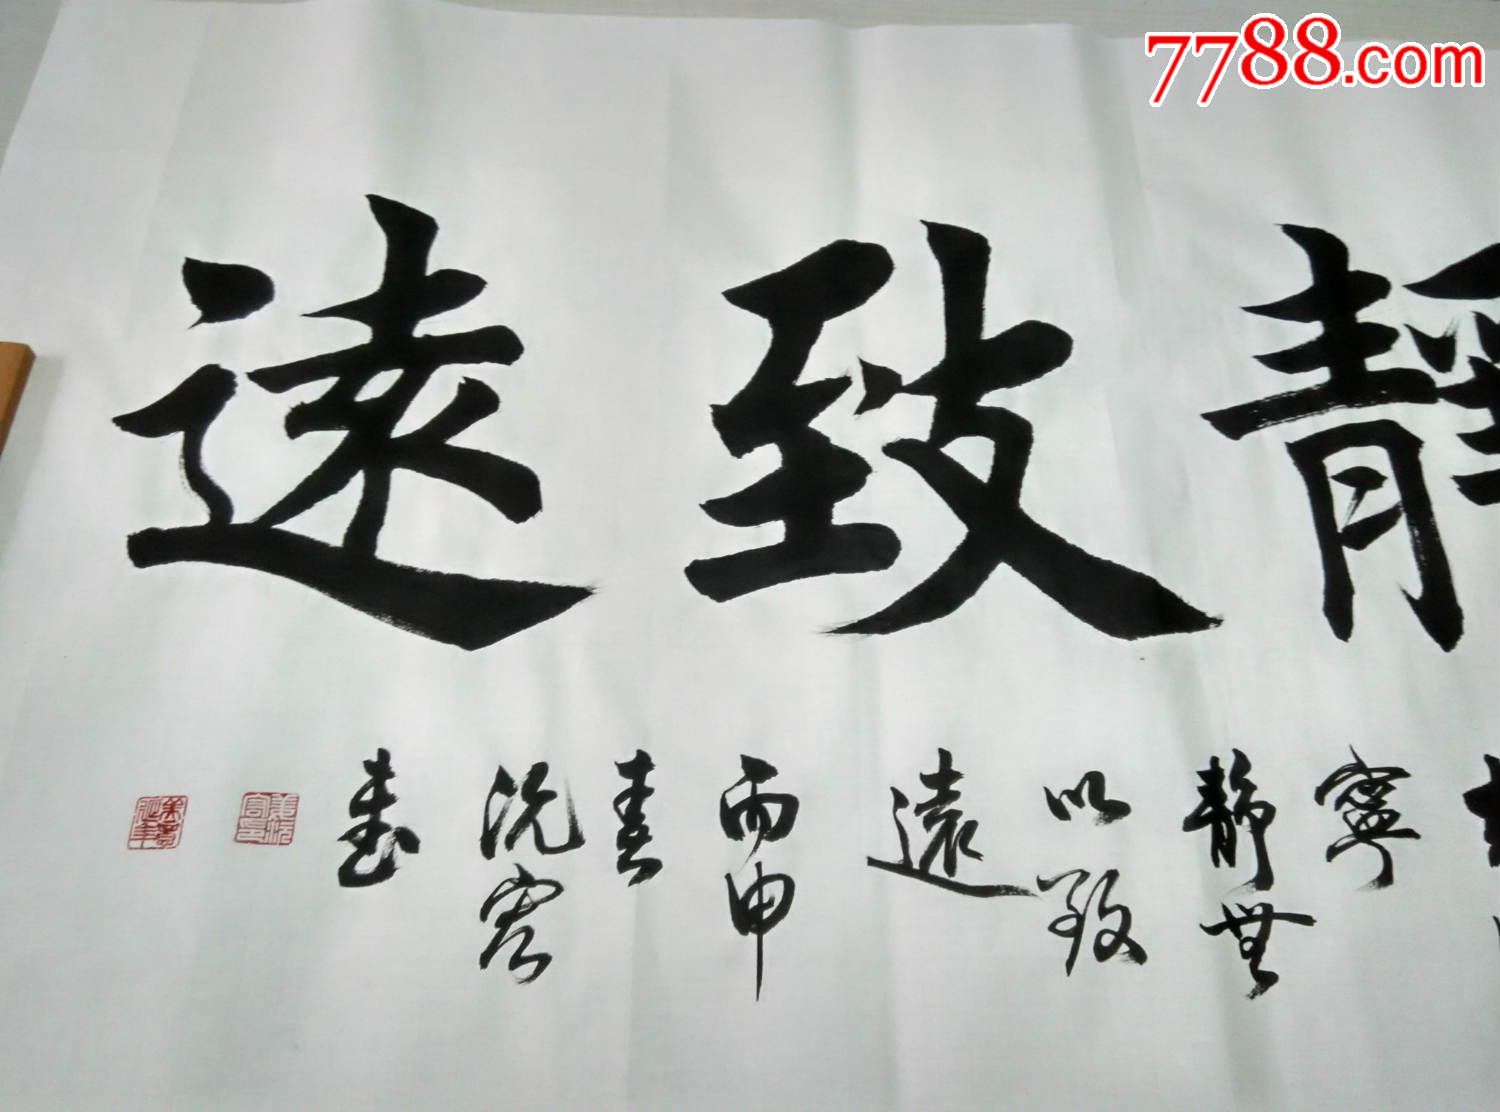 7788.com
靜致遠
寧
靜無
以致
遠
丙申
春
沅客
書